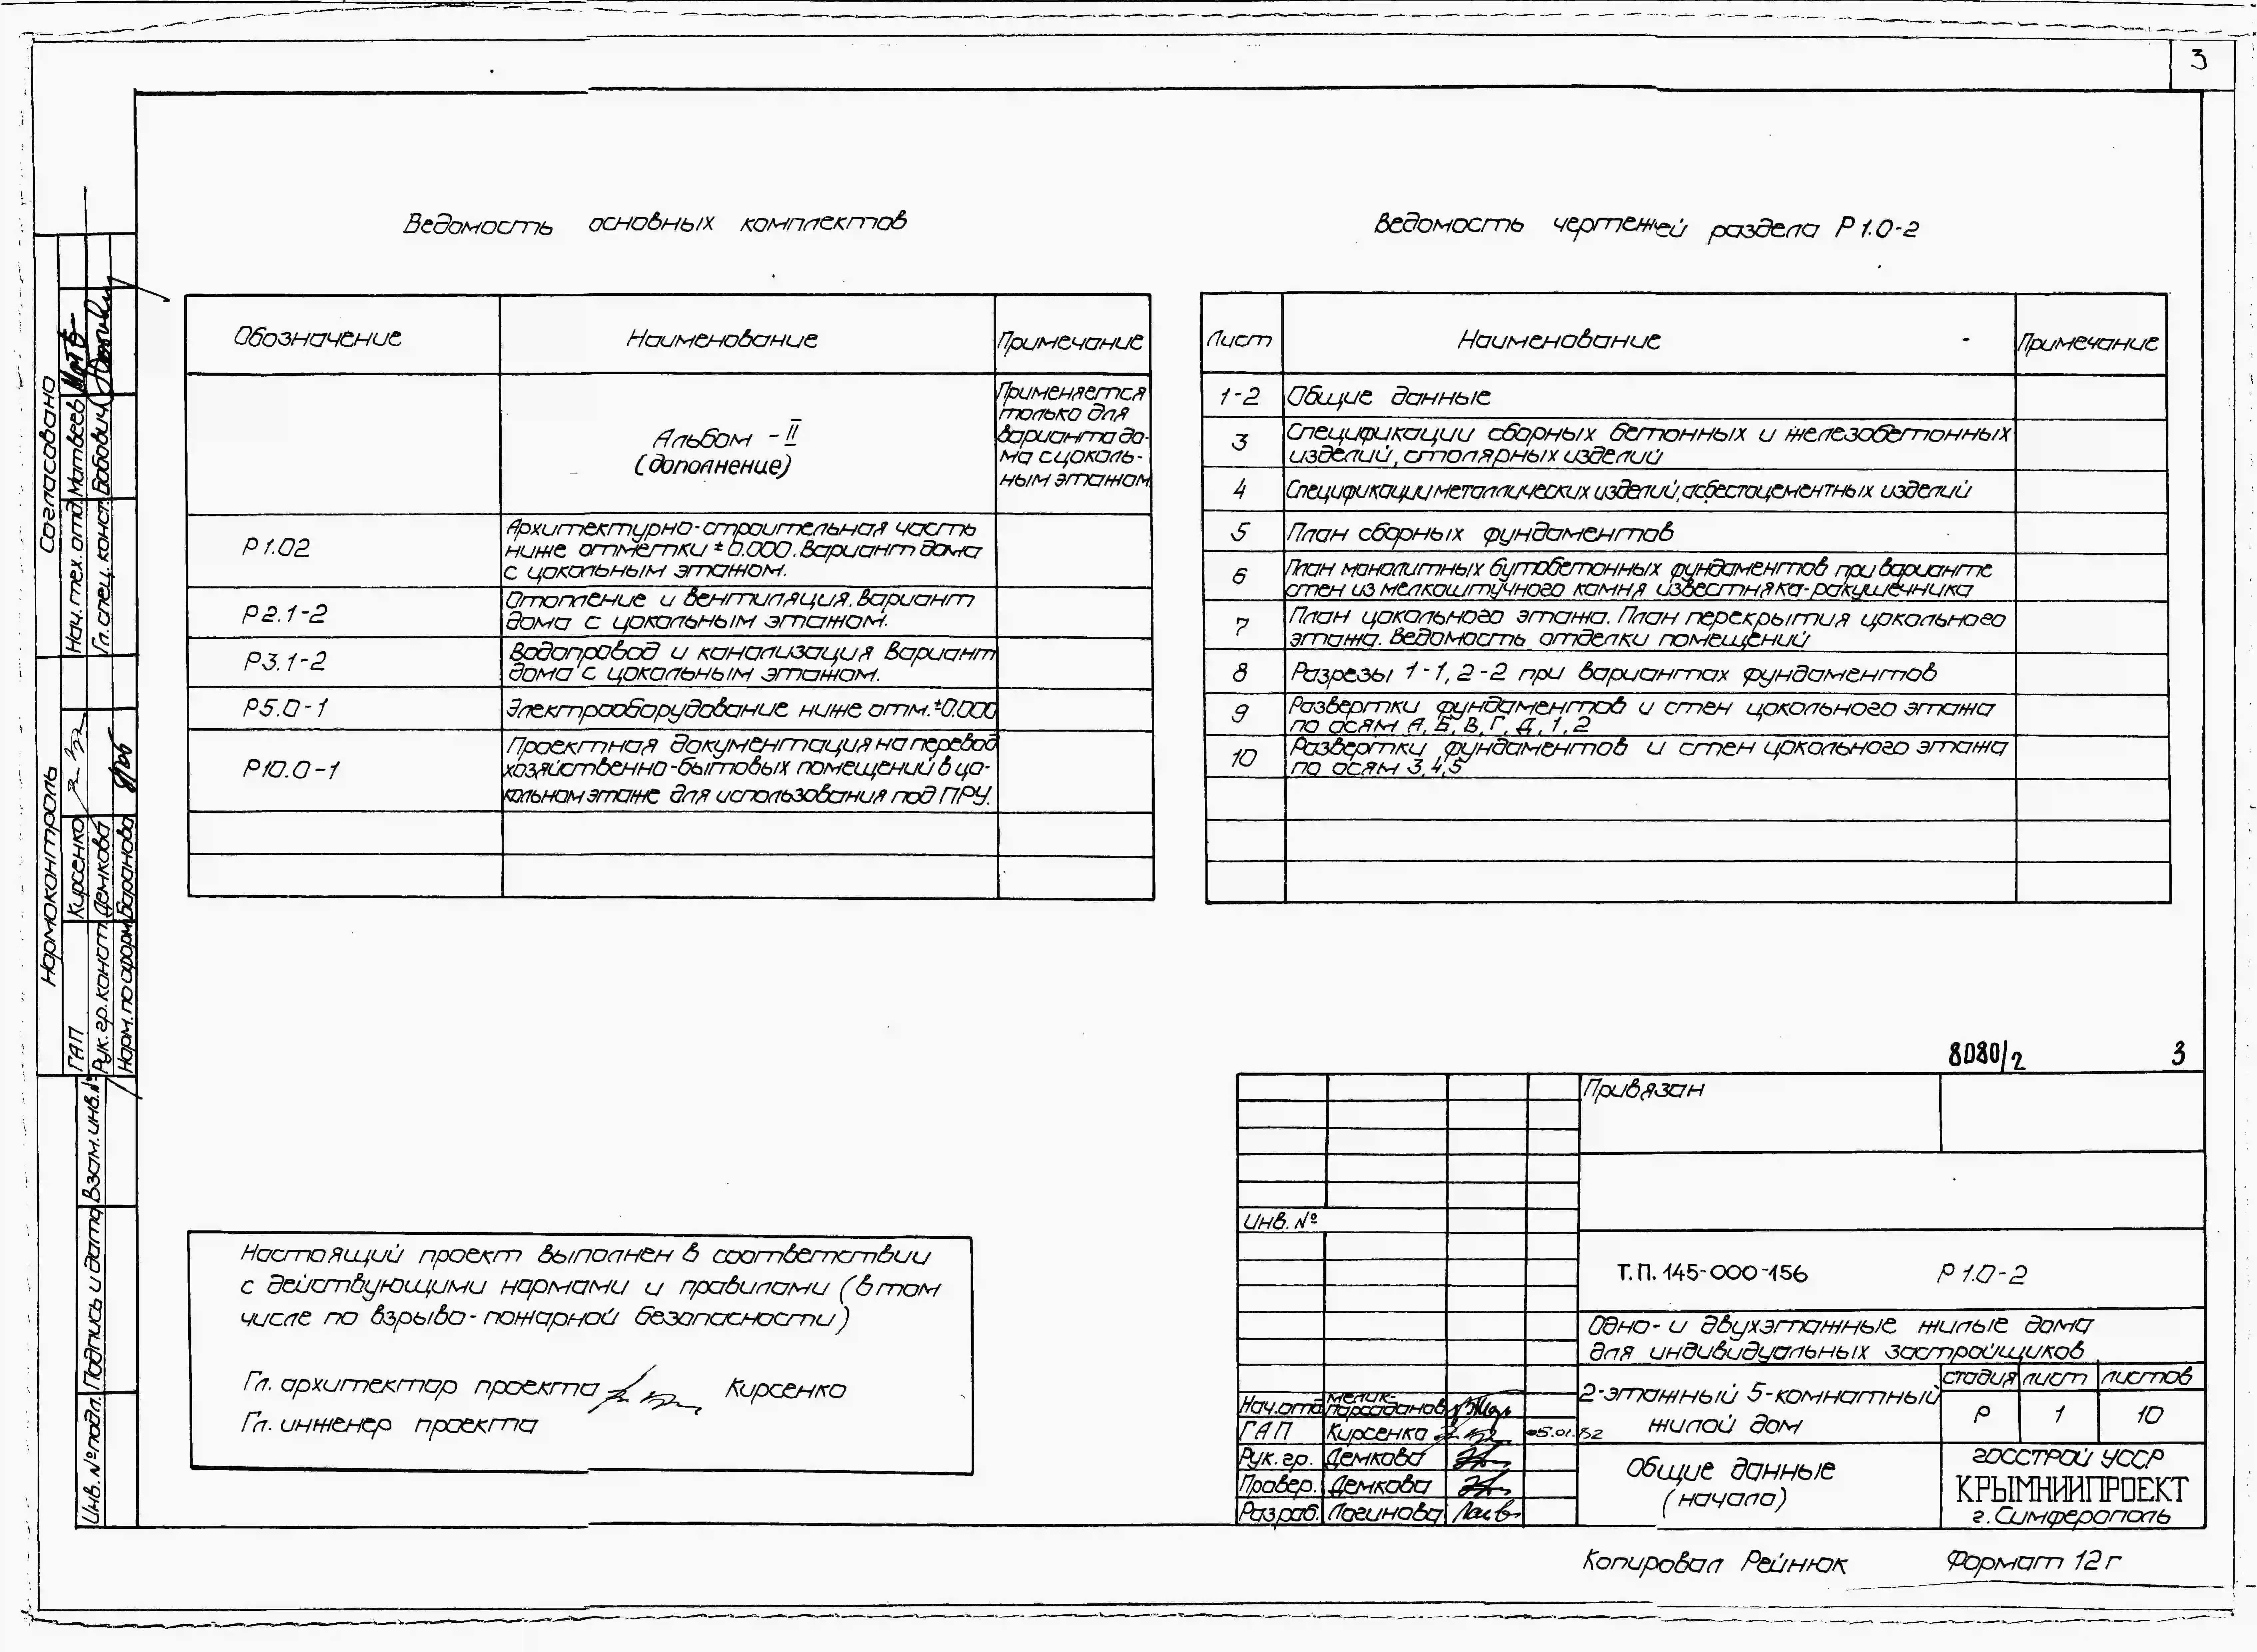 3
Ведомость основных комплектов
Обозначение Наименование Примечание
Альбом - II
(дополнение)
Применяется
только для
варианта до-
ма с цоколь-
ным этажом
Р 1.02
Архитектурно-строительная часть
ниже отметки ± 0.000. Вариант дома
с цокольным этажом.
Р2.1-2
Отопление и вентиляция. Вариант
дома с цокольным этажом.
Р3.1-2
Водопровод и канализация Вариант
дома с цокольным этажом.
Р5.0-1
Электрооборудование ниже отм.±0.000
Р10.0-1
Проектная документация на перевод
хозяйственно-бытовых помещений в цо-
кольном этаже для использования под ПРУ.
Ведомость чертежей раздела Р 1.0-2
Лист Наименование Примечание
1-2 Общие данные
3 Спецификации сборных бетонных и железобетонных
изделий, столярных изделий
4 Спецификации металлических изделий, асбестоцементных изделий
5 План сборных фундаментов
6 План монолитных бутобетонных фундаментов при варианте
стен из мелкоштучного камня известняка-ракушечника
7 План цокольного этажа. План перекрытия цокольного
этажа. Ведомость отделки помещений
8 Разрезы 1-1, 2-2 при вариантах фундаментов
9 Развертки фундаментов и стен цокольного этажа
по осям А, Б, В, Г, Д, 1, 2
10 Развертки фундаментов и стен цокольного этажа
по осям 3, 4, 5
Настоящий проект выполнен в соответствии
с действующими нормами и правилами (в том
числе по взрыво-пожарной безопасности)
Гл. архитектор проекта Кирсенко
Гл. инженер проекта
Согласовано
Нач. тех. отд. Матвеев
Гл. спец. конст. Бобович
Нормоконтроль
ГАП Кирсенко
Рук. гр. конст. Демкова
Норм. по оформ. Баранова
Взам. инв. №
Подпись и дата
Инв. № подл.
8080/2 3
Привязан
Инв. №
Т.П. 145-000-156 Р 1.0-2
Одно- и двухэтажные жилые дома
для индивидуальных застройщиков
2-этажный 5-комнатный
жилой дом
стадия лист листов
Р 1 10
Общие данные
(начало)
ГОССТРОЙ УССР
КРЫМНИИПРОЕКТ
г. Симферополь
Нач. отд. Мелик-
Парсаданов
ГАП Кирсенко
Рук. гр. Демкова
Провер. Демкова
Разраб. Логинова
Копировал Рейнюк Формат 12г